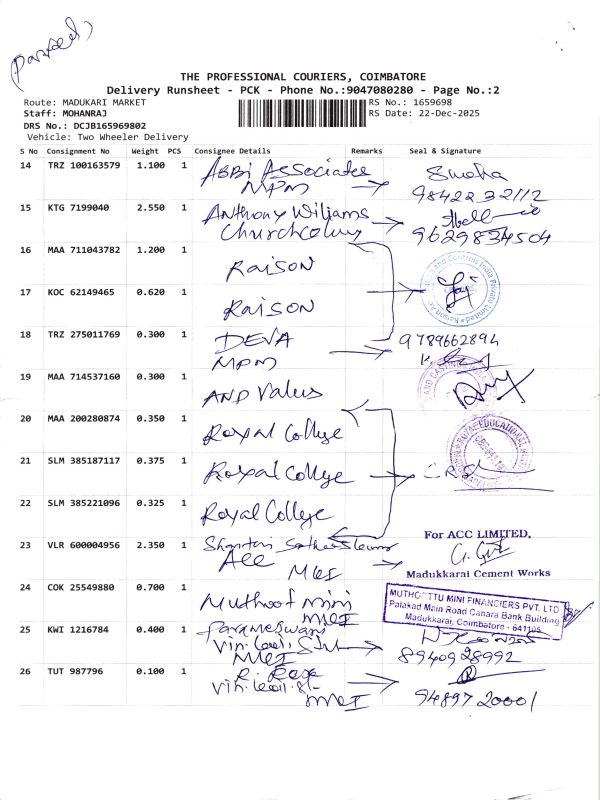 Parsed
THE PROFESSIONAL COURIERS, COIMBATORE
Delivery Runsheet - PCK - Phone No.:9047080280 - Page No.:2
Route: MADUKARI MARKET
RS No.: 1659698
Staff: MOHANRAJ
RS Date: 22-Dec-2025
DRS No.: DCJB165969802
Vehicle: Two Wheeler Delivery
S No Consignment No Weight PCS Consignee Details Remarks Seal & Signature
14 TRZ 100163579 1.100 1 ABBi Associates Sneha
MPM 9842232112
15 KTG 7199040 2.550 1 Anthony Wiliams
Church 9629834504
16 MAA 711043782 1.200 1 RAISON
17 KOC 62149465 0.620 1 RAISON
18 TRZ 275011769 0.300 1 DEVA 9789662894
MPM
19 MAA 714537160 0.300 1 AND Values
20 MAA 200280874 0.350 1 Royal College
21 SLM 385187117 0.375 1 Royal College
22 SLM 385221096 0.325 1 Royal College
For ACC LIMITED,
23 VLR 600004956 2.350 1 Shantari
ACC MKI
Madukkarai Cement Works
24 COK 25549880 0.700 1 Muthoot mini
MKI
MUTHOOTTU MINI FINANCIERS PVT. LTD
Palakad Main Road Canara Bank Building
Madukkarai, Coimbatore - 641105
25 KWI 1216784 0.400 1 Parameswari
MKI 8940928992
26 TUT 987796 0.100 1 R. Rose
MKI 9489720001